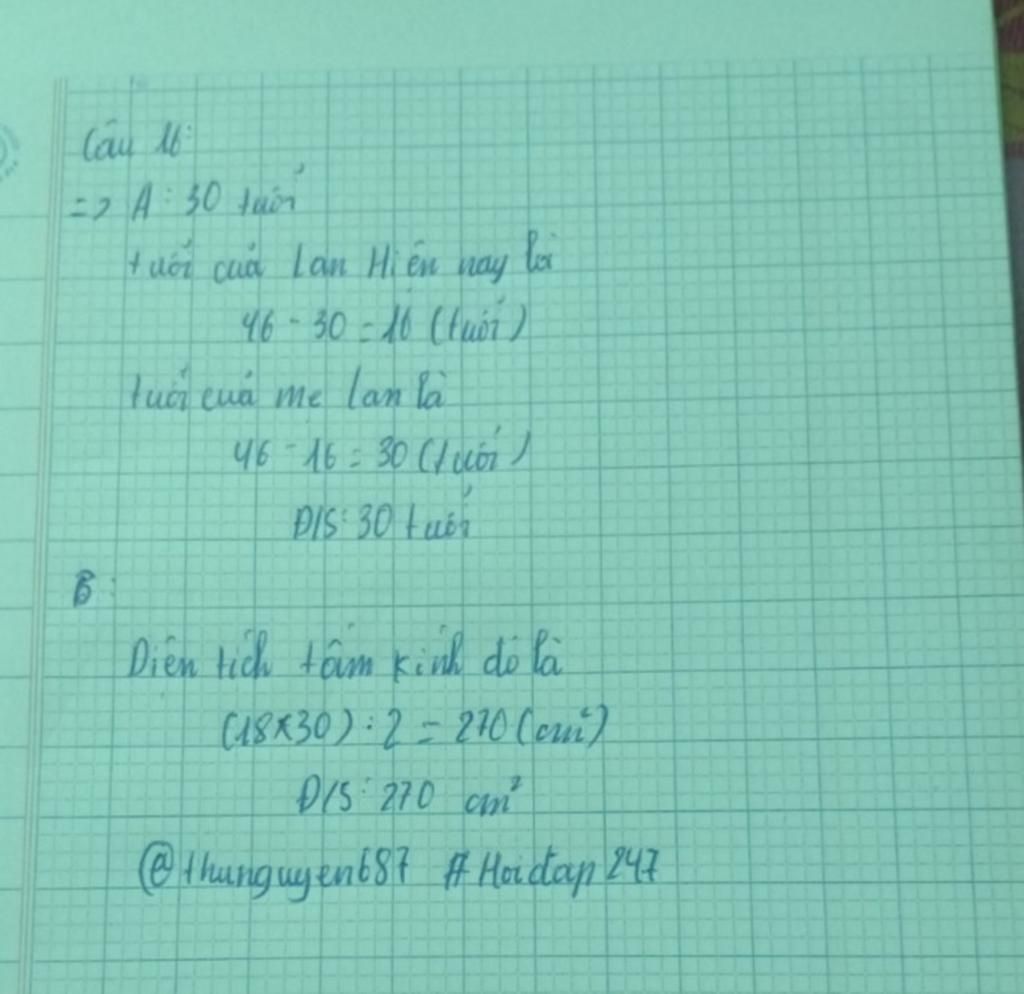 Câu 16:
=> A: 30 tuổi
tuổi của Lan Hiện nay là
46 - 30 = 16 (tuổi)
tuổi cuả mẹ lan là
46 - 16 = 30 (tuổi)
Đ/S: 30 tuổi
B:
Diện tích tấm kính đó là
(18×30) : 2 = 270 (cm²)
Đ/S: 270 cm²
@thunguyen687 #Hoidap247